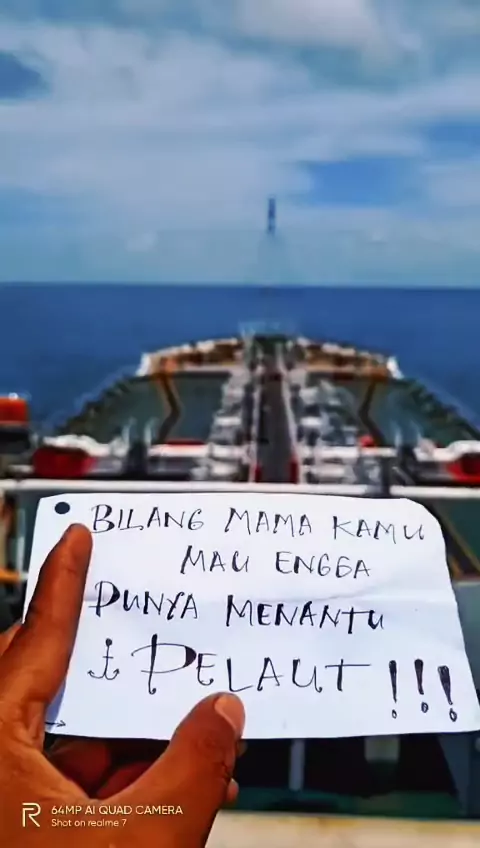 BILANG MAMA KAMU
MAU ENGGA
PUNYA MENANTU
PELAUT !!!
R
64MP AI QUAD CAMERA
Shot on realme 7